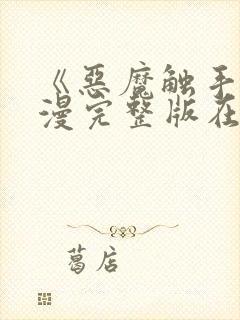 《恶魔触手
漫完整版在
葛店